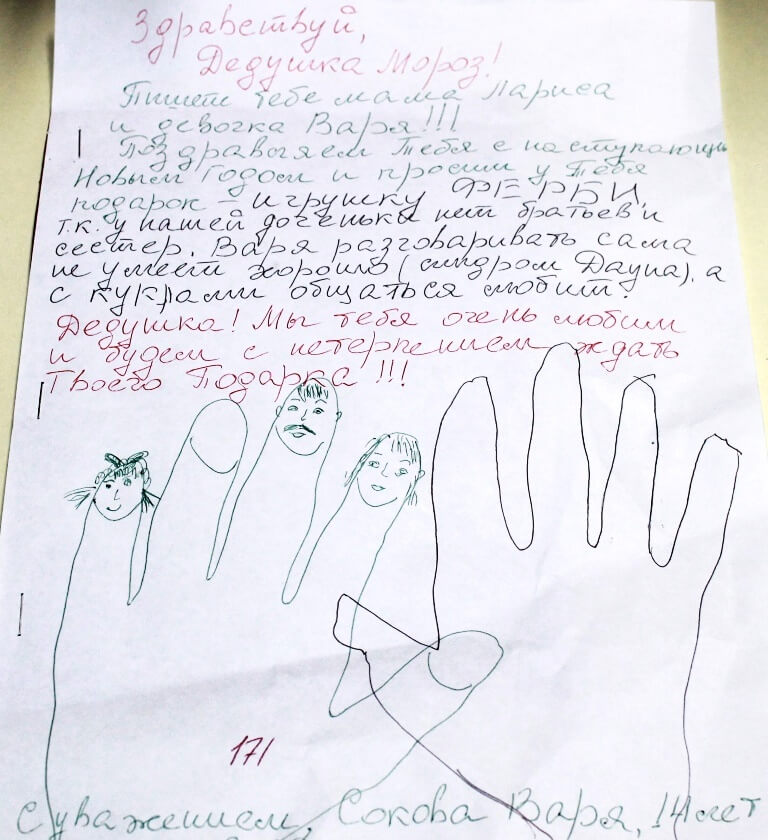 Здравствуй,
Дедушка Мороз!
Пишет тебе мама Лариса
и девочка Варя!!!
Поздравляем Тебя с наступающим
Новым Годом и просим у Тебя
подарок – игрушку ФЕРБИ,
т.к. у нашей доченьки нет братьев и
сестер. Варя разговаривать сама
не умеет хорошо (синдром Дауна), а
с куклами общаться любит.
Дедушка! Мы тебя очень любим
и будем с нетерпением ждать
Твоего Подарка !!!
171
С уважением, Сокова Варя, 14 лет